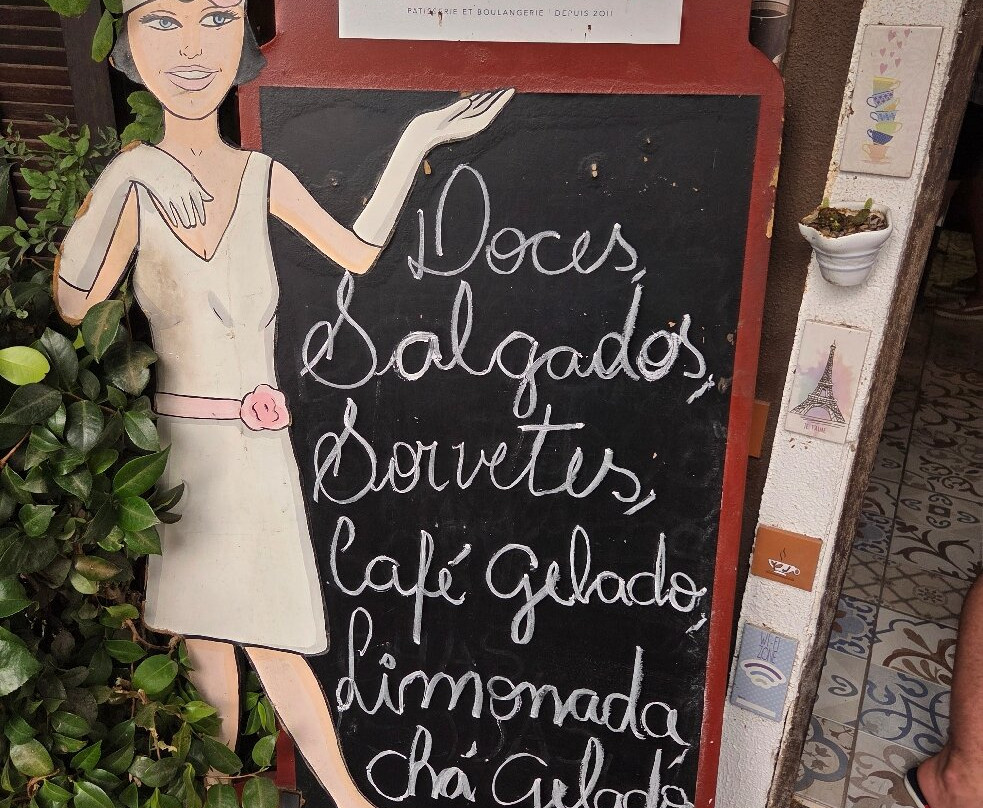 PATISSERIE ET BOULANGERIE | DEPUIS 2011
Doces,
Salgados,
Sorvetes,
Café Gelado,
Limonada,
chá Gelado
JE T'AIME
WI-FI
ZONE